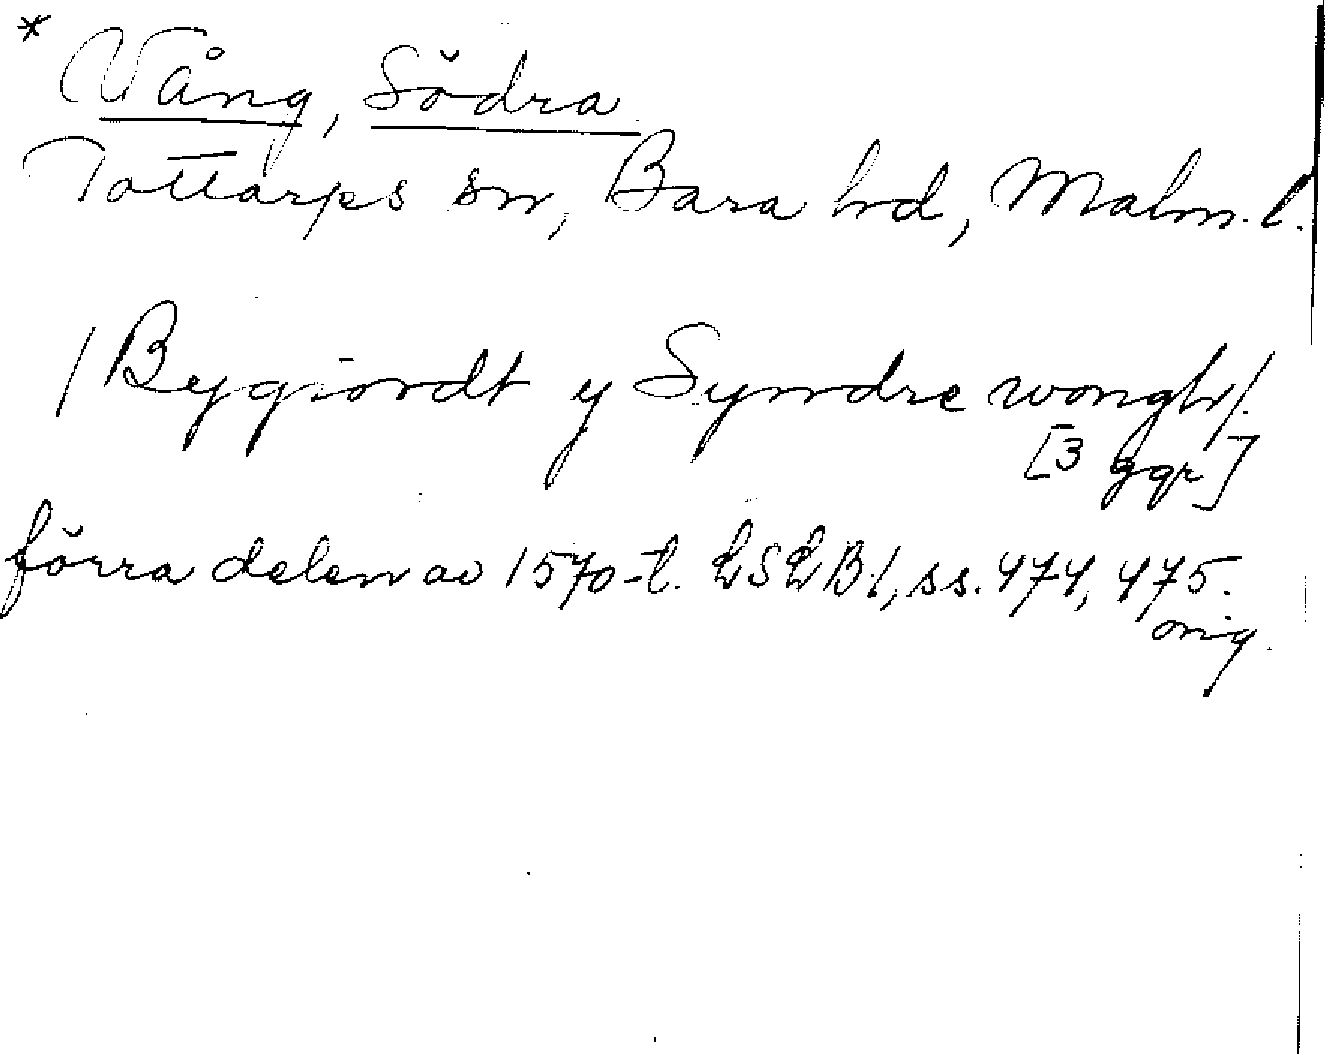 * Vång, Södra
Tottarps sn, Bara hd, Malm. l.
/Bygiordt y Syndre wongh/.
[3 ggr]
förra delen av 1570-t. LSLB 1, ss. 474, 475.
orig.